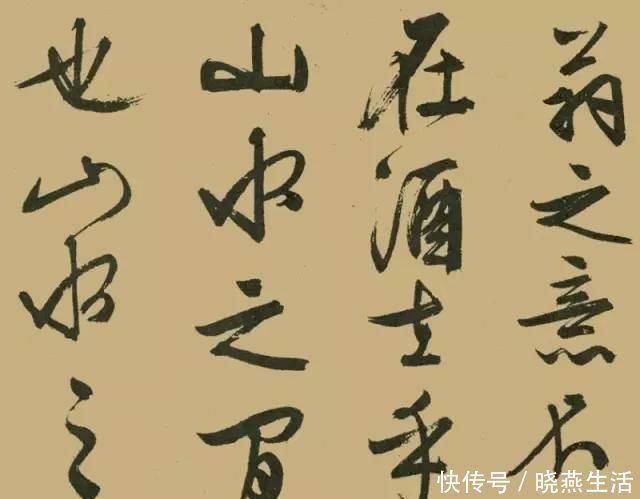 翁之意不
在酒在乎
山水之间
也山水之
快传号/晓燕生活